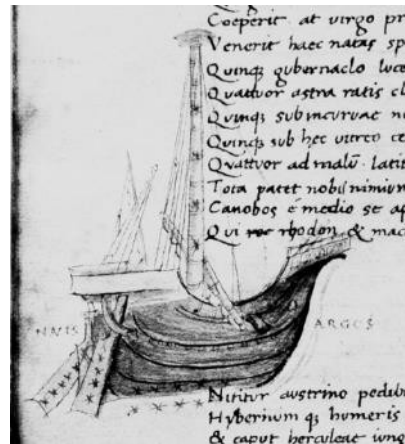 Coeperit at virgo pr
Venerit haec natas sp
Quinq; gubernaclo luce
Quattuor astra ratis cl
Quinq; subincuruae n
Quinq; sub hec vitreo ce
Quattuor ad malū latit
Tota patet nobis nimium
Canobos é medio se ap
Qui rhodon & mac
NAVIS
ARGOS
Nititur austrino pedibu
Hybernum q; humeris
& caput herculeae iung